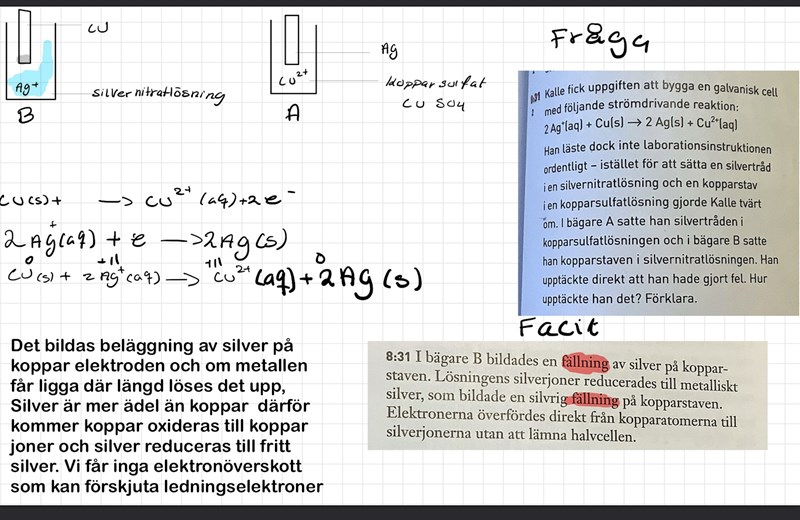 Cu
Ag+
silvernitratlösning
B
Ag
Cu2+
kopparsulfat
CU SO4
A
Fråga
8:31 Kalle fick uppgiften att bygga en galvanisk cell
med följande strömdrivande reaktion:
2 Ag+(aq) + Cu(s) → 2 Ag(s) + Cu2+(aq)
Han läste dock inte laborationsinstruktionen
ordentligt – istället för att sätta en silvertråd
i en silvernitratlösning och en kopparstav
i en kopparsulfatlösning gjorde Kalle tvärt
om. I bägare A satte han silvertråden i
kopparsulfatlösningen och i bägare B satte
han kopparstaven i silvernitratlösningen. Han
upptäckte direkt att han hade gjort fel. Hur
upptäckte han det? Förklara.
CU(s)+ → CU2+ (aq)+2e-
2 Ag+(aq) + e → 2Ag(s)
0 +II +II 0
CU(s) + 2Ag+(aq) → Cu2+ (aq)+ 2Ag (s)
Facit
8:31 I bägare B bildades en fällning av silver på koppar-
staven. Lösningens silverjoner reducerades till metalliskt
silver, som bildade en silvrig fällning på kopparstaven.
Elektronerna överfördes direkt från kopparatomerna till
silverjonerna utan att lämna halvcellen.
Det bildas beläggning av silver på
koppar elektroden och om metallen
får ligga där längd löses det upp,
Silver är mer ädel än koppar därför
kommer koppar oxideras till koppar
joner och silver reduceras till fritt
silver. Vi får inga elektronöverskott
som kan förskjuta ledningselektroner